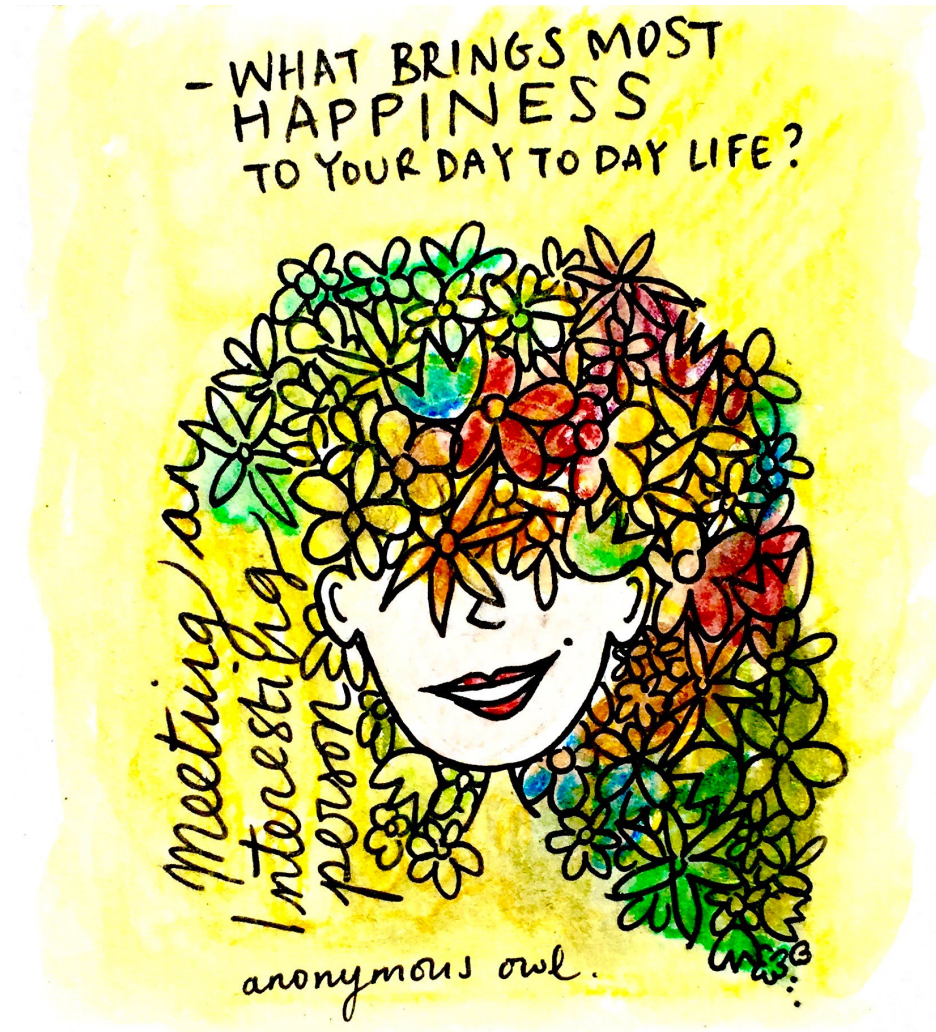 - WHAT BRINGS MOST
HAPPINESS
TO YOUR DAY TO DAY LIFE?
Meeting an
Interesting
person
anonymous owl.